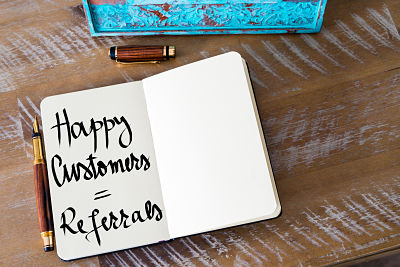 Happy
Customers
=
Referrals